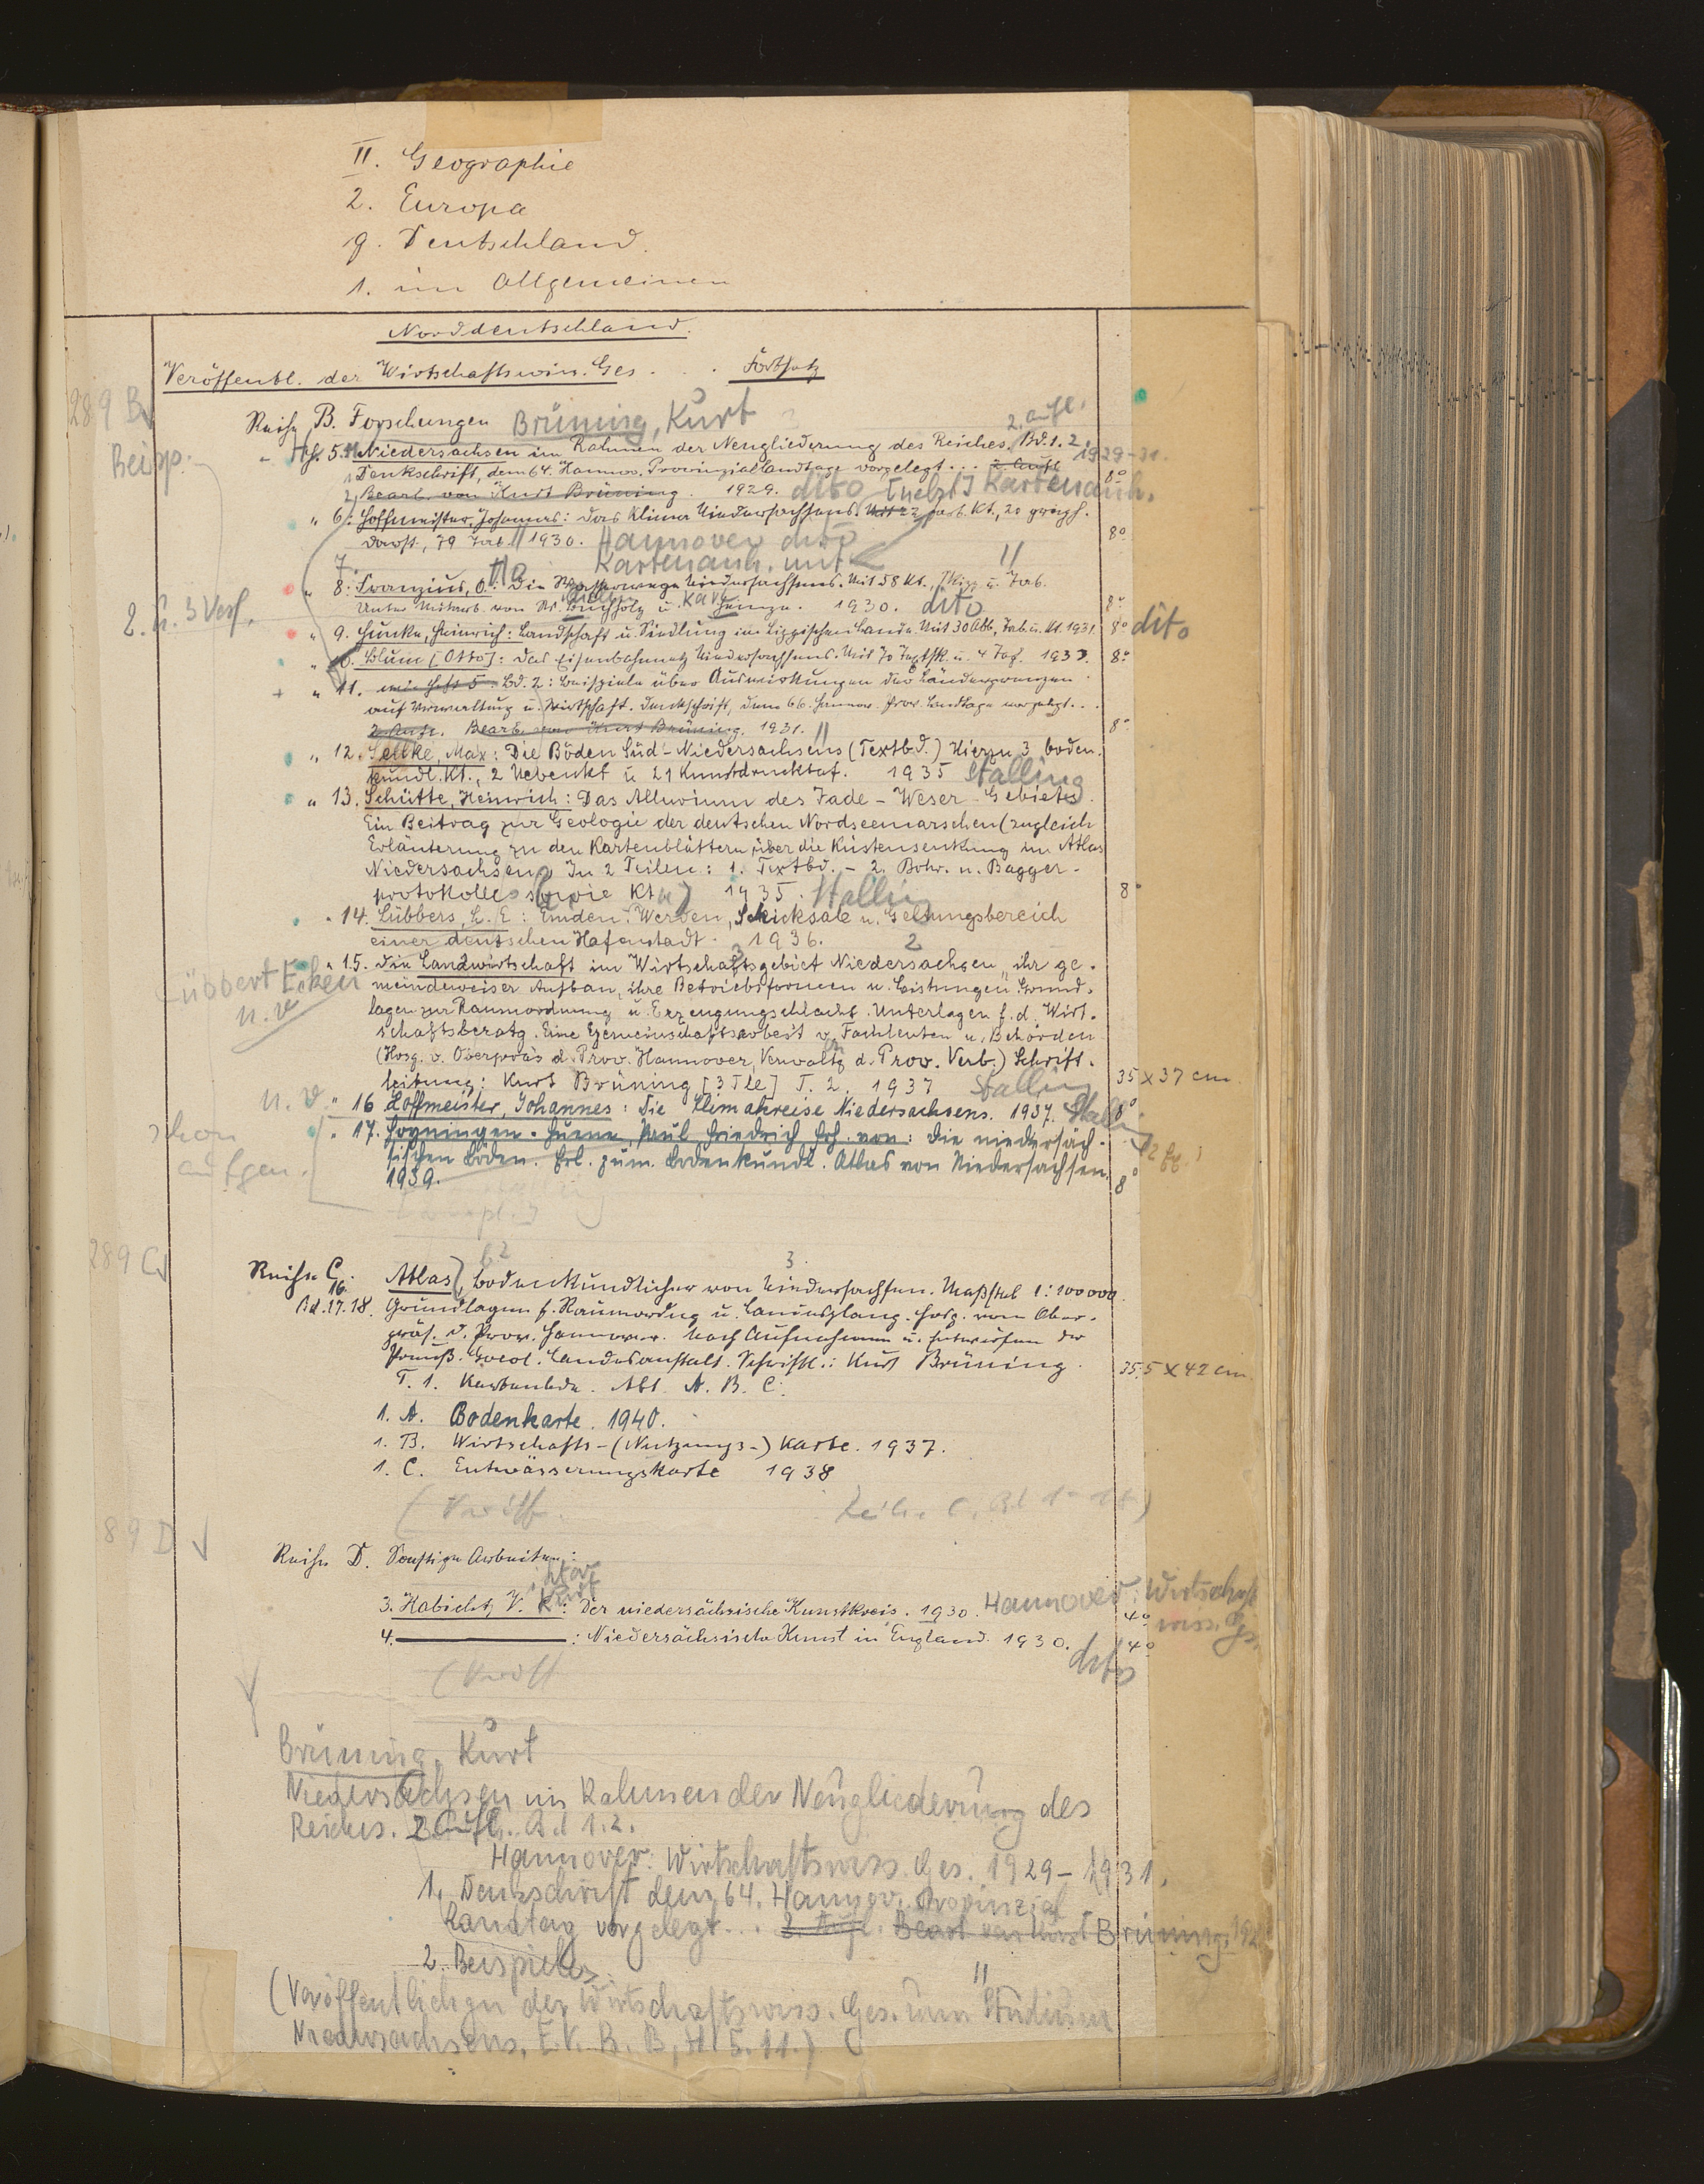 II. Geographie
2. Europa
g. Deutschland.
1. im Allgemeinen
Norddeutschland.
Veröffentl. der Wirtschaftswiss. Ges. . . . Fortsetz
289 B
Reihe B. Forschungen Brüning, Kurt
2. Aufl.
H. 5. Niedersachsen im Rahmen der Neugliederung des Reiches. Bd. 1. 2. 1929-31.
Denkschrift, dem 64. Hannov. Provinziallandtage vorgelegt . . . 2. Aufl 8°
Bearb. von Kurt Brüning. 1929. dito [nebst] Kartenanh.
" 6: Hoffmeister, Johannes: Das Klima Niedersachsens. Mit 22 farb. Kt., 20 graph.
Darst., 79 Tab. 1930. Hannover dito 8°
7. Kartenanh. mit
" 8: Franzius, O.: Die Wasserwege Niedersachsens. Mit 58 Kt., Skizz. u. Tab.
Unter Mitarb. von Dr. Buchholz u. Karl Jenge. 1930. dito 8°
2. u. 3 Verf.
" 9. Hunke, Heinrich: Landschaft u. Siedlung im Lippischen Lande. Mit 30 Abb., Tab. u. Kt. 1931. 8° dito
" 10. Blum [Otto]: Das Eisenbahnnetz Niedersachsens. Mit 70 Textsk. u. 4 Taf. 1933. 8°
+ " 11. wie Heft 5. Bd. 2: Beispiele über Auswirkungen der Ländergrenzen
auf Verwaltung u. Wirtschaft. Denkschrift, dem 66. Hannov. Prov. Landtage vorgelegt. . .
2. Aufl. Bearb. von Kurt Brüning. 1931. 8°
" 12. Sellke, Max: Die Böden Süd-Niedersachsens (Textbd.) Hierzu 3 boden-
kundl. Kt., 2 Nebenkt u 21 Kunstdrucktaf. 1935 Stalling
" 13. Schütte, Heinrich: Das Alluvium des Jade-Weser-Gebietes.
Ein Beitrag zur Geologie der deutschen Nordseemarschen (zugleich
Erläuterung zu den Kartenblättern über die Küstensenkung im Atlas
Niedersachsen) In 2 Teilen: 1. Textbd. - 2. Bohr- u. Bagger-
protokolle sowie Ktn 1935. Stalling 8°
" 14. Lübbers, L. E: Emden. Werden, Schicksale u. Geltungsbereich
einer deutschen Hafenstadt. 1936.
" 15. Die Landwirtschaft im Wirtschaftsgebiet Niedersachsen, ihr ge-
meindeweiser Aufbau, ihre Betriebsformen u. Leistungen. Grund-
lagen zur Raumordnung u. Erzeugungsschlacht. Unterlagen f. d. Wirt-
schaftsberatg. Eine Gemeinschaftsarbeit v. Fachleuten u. Behörden
(Hrsg. v. Oberpräs d. Prov. Hannover, Verwaltg d. Prov. Verb.) Schrift-
leitung: Kurt Brüning [3 Tle] T. 2. 1937 Stalling 35 x 37 cm
" 16 Hoffmeister, Johannes: Die Klimakreise Niedersachsens. 1937. 8°
" 17. Hoyningen-Huene, Paul Friedrich Frh. von: Die niedersäch-
sischen Böden. Erl. zum Bodenkundl. Atlas von Niedersachsen.
1939. 8°
schon
aufgen.
289 C
Reihe C. Atlas, Bodenkundlicher von Niedersachsen. Maßstab 1:100000.
16.
Bd. 17. 18. Grundlagen f. Raumordng u. Landesplang. Hrsg. vom Ober-
präs. d. Prov. Hannover. Nach Aufnahmen u. Entwürfen der
Preuß. Geol. Landesanstalt. Schriftl.: Kurt Brüning. 35,5 x 42 cm
T. 1. Kartenbde. Abt. A. B. C.
1. A. Bodenkarte. 1940.
1. B. Wirtschafts-(Nutzungs-) Karte. 1937.
1. C. Entwässerungskarte 1938
89 D
Reihe D. Sonstige Arbeiten:
3. Habicht, V. K.: Der niedersächsische Kunstkreis. 1930. Hannover: Wirtschaft 4°
wiss. Ges.
4. ———: Niedersächsische Kunst in England. 1930. 4°
dito
Brüning, Kurt
Niedersachsen im Rahmen der Neugliederung des
Reiches. 2. Aufl. Bd 1.2.
Hannover: Wirtschaftswiss. Ges. 1929-1931.
1. Denkschrift dem 64. Hannov. Provinzial
Landtag vorgelegt . . . 2. Aufl. Bearb von Kurt Brüning. 192
2. Beispiele
(Veröffentlichgn der Wirtschaftswiss. Ges. zum Studium
Niedersachsens, E.V. R. B, H 5. 11.)